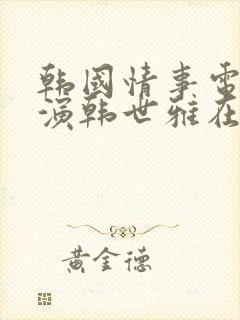 韩國情事電
演韩世雅在
黄金德